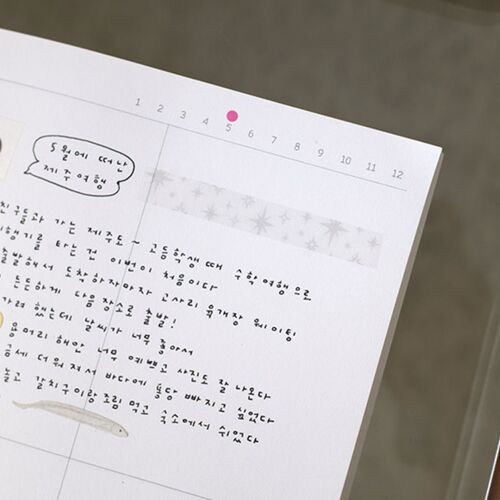 1 2 3 4 5 6 7 8 9 10 11 12
5월에 떠난
제주여행
친구들과 가는 제주도 ~ 고등학생때 수학여행으로
비행기를 타는건 이번이 처음이다
출발해서 도착하자마자 고사리 육개장 웨이팅
든든하게 다음 장소로 출발!
가려 했는데 날씨가 너무 좋아서
용머리 해안 너무 예쁘고 사진도 잘 나온다
더워져서 바다에 풍당 빠지고 싶었다
놀고 갈치구이랑 조림 먹고 숙소에서 쉬었다